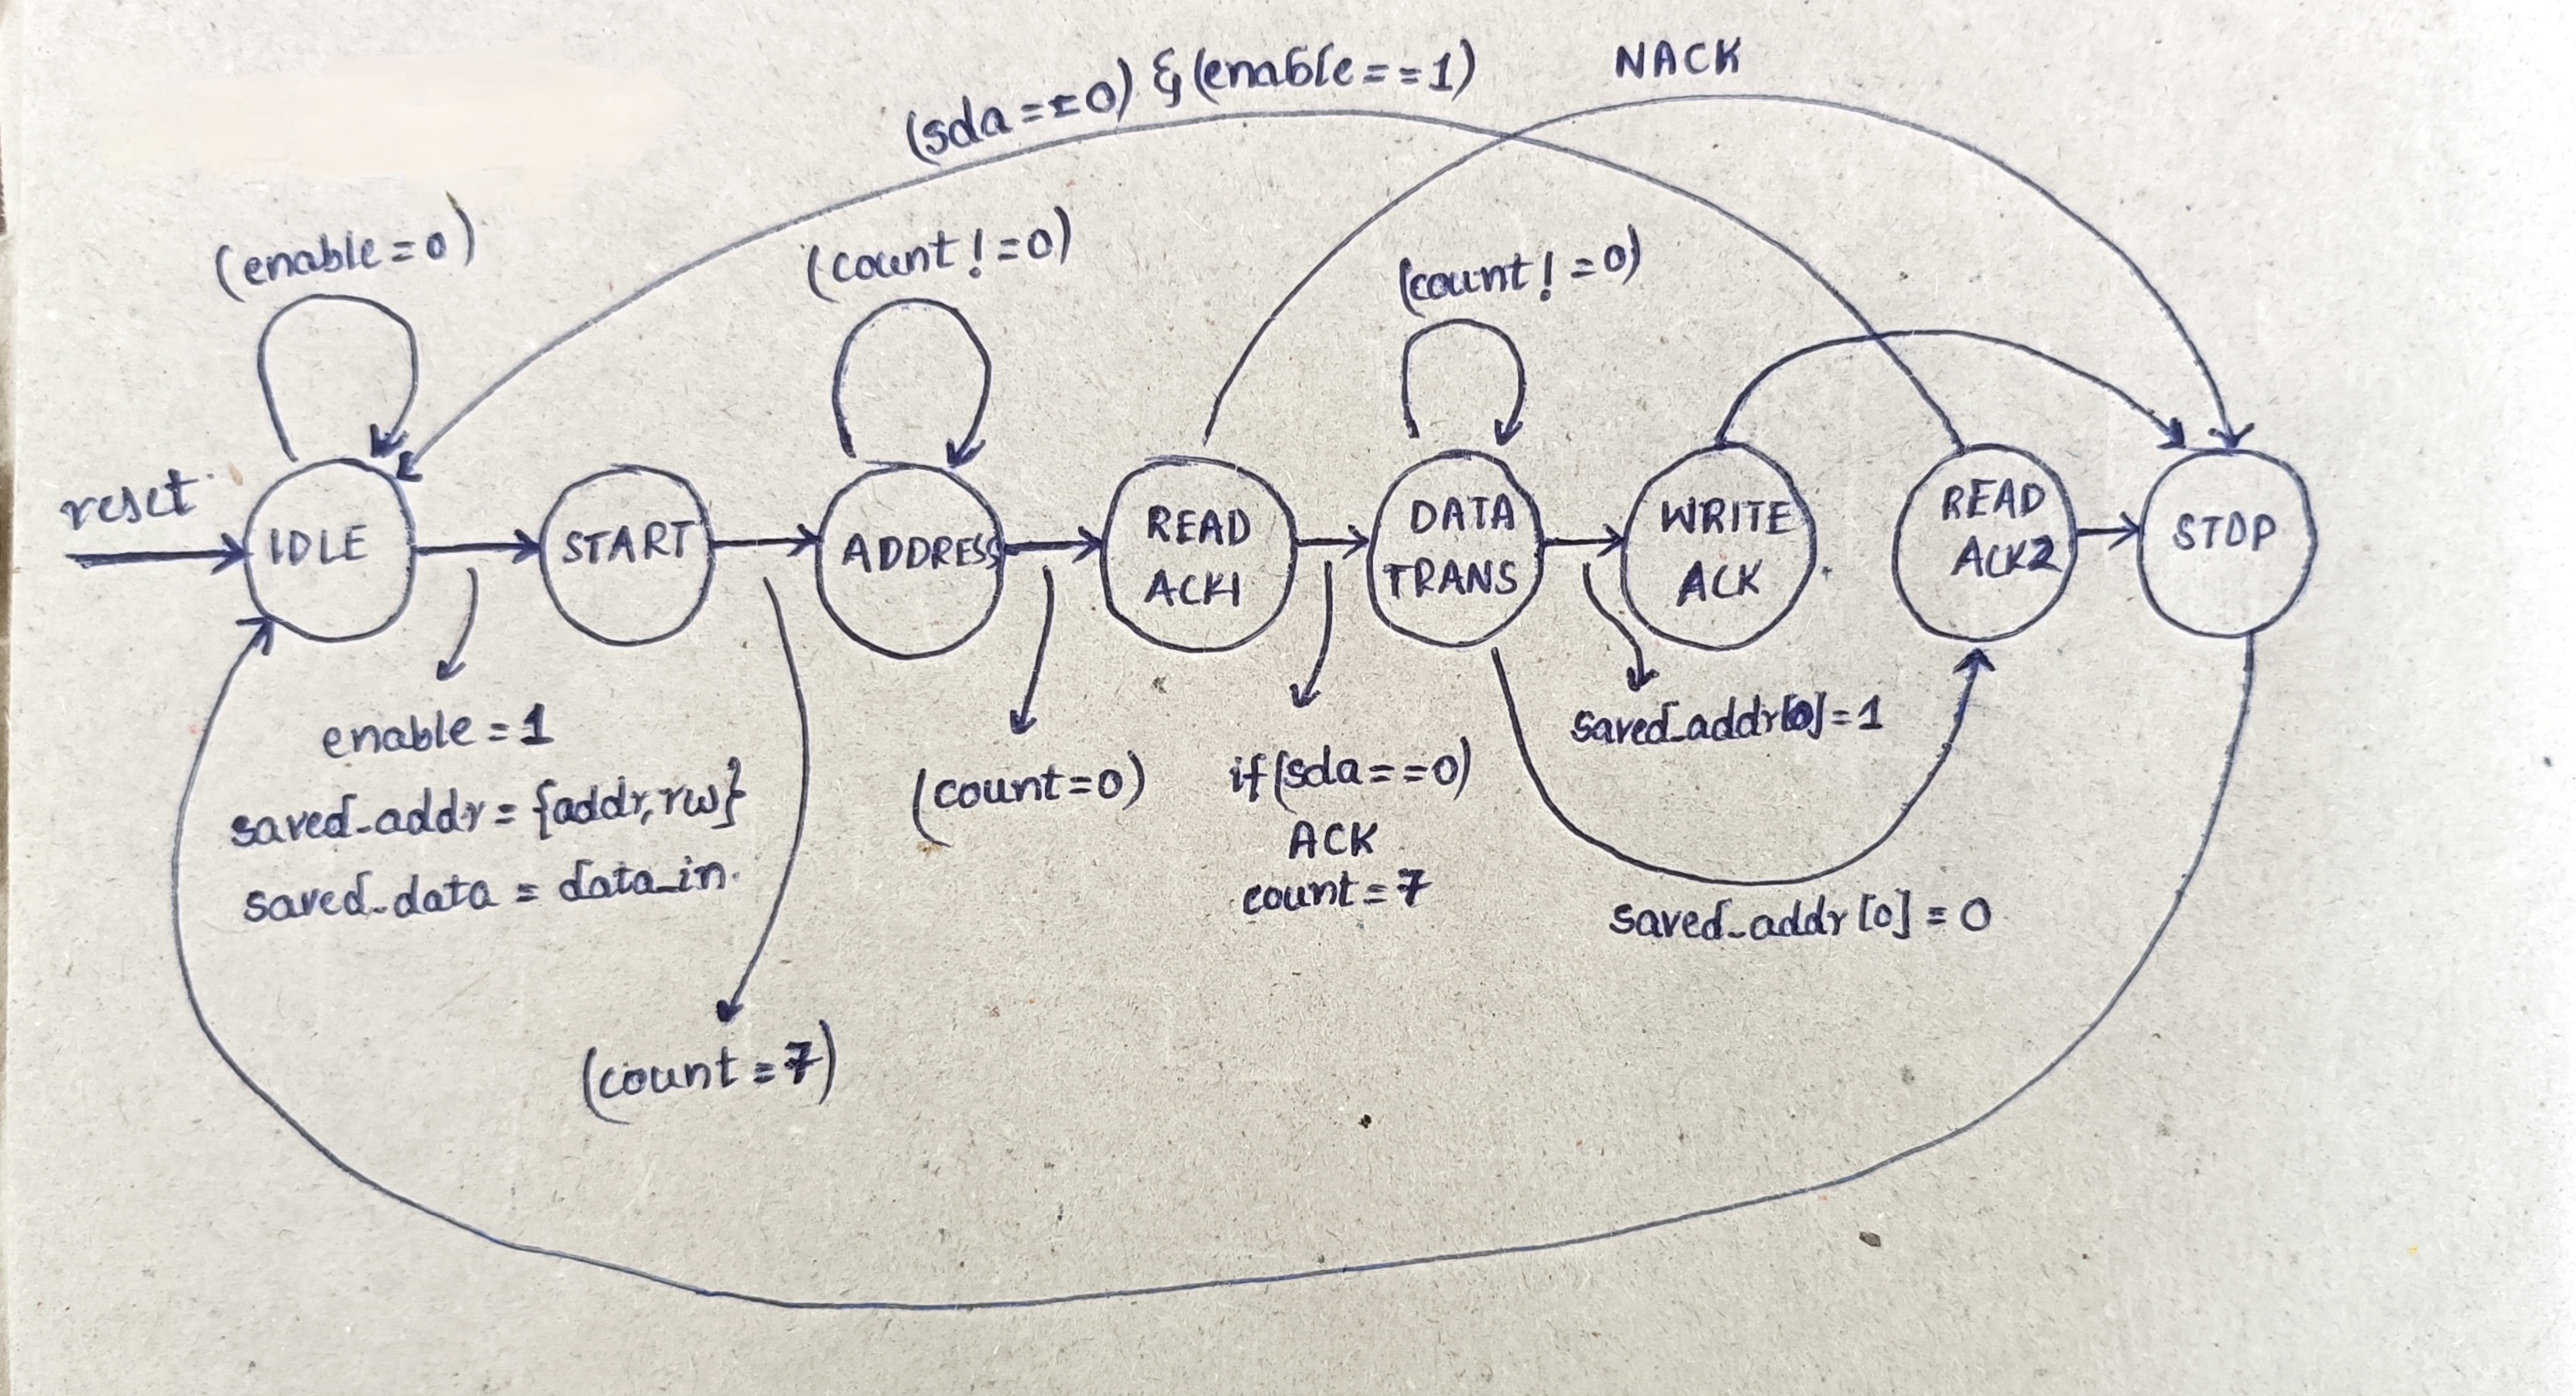 NACK
(sda==0) & (enable==1)
(enable=0)
(count!=0)
(count!=0)
reset
IDLE
START
ADDRESS
READ
ACK1
DATA
TRANS
WRITE
ACK
READ
ACK2
STOP
enable=1
saved_addr={addr,rw}
saved_data = data_in.
(count=7)
(count=0)
if(sda==0)
ACK
count=7
saved_addr[0]=1
saved_addr[0]=0